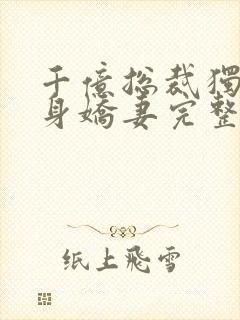 千億总裁獨
身嬌妻完整
纸上飛雪